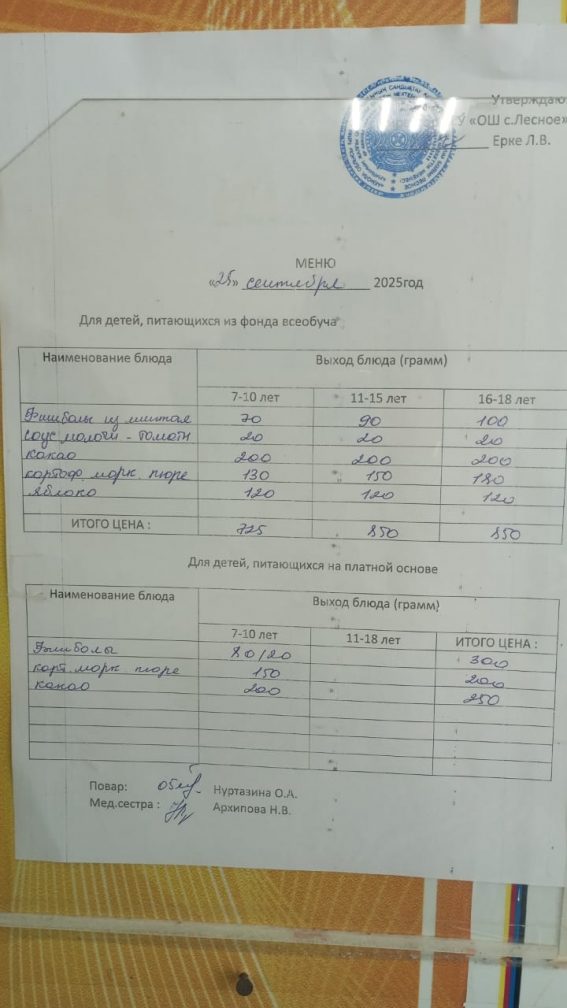 Утверждаю
У «ОШ с.Лесное»
Ерке Л.В.
МЕНЮ
«25» сентября 2025год
Для детей, питающихся из фонда всеобуча
Наименование блюда Выход блюда (грамм)
7-10 лет 11-15 лет 16-18 лет
Фишболы из минтая 70 90 100
соус молочн - томатн 20 20 20
какао 200 200 200
картоф. морк. пюре 130 150 180
яблоко 120 120 120
ИТОГО ЦЕНА : 725 850 850
Для детей, питающихся на платной основе
Наименование блюда Выход блюда (грамм)
7-10 лет 11-18 лет ИТОГО ЦЕНА :
Фишболы 80/20 300
карт. морк. пюре 150 200
какао 200 250
Повар: Нуртазина О.А.
Мед.сестра : Архипова Н.В.